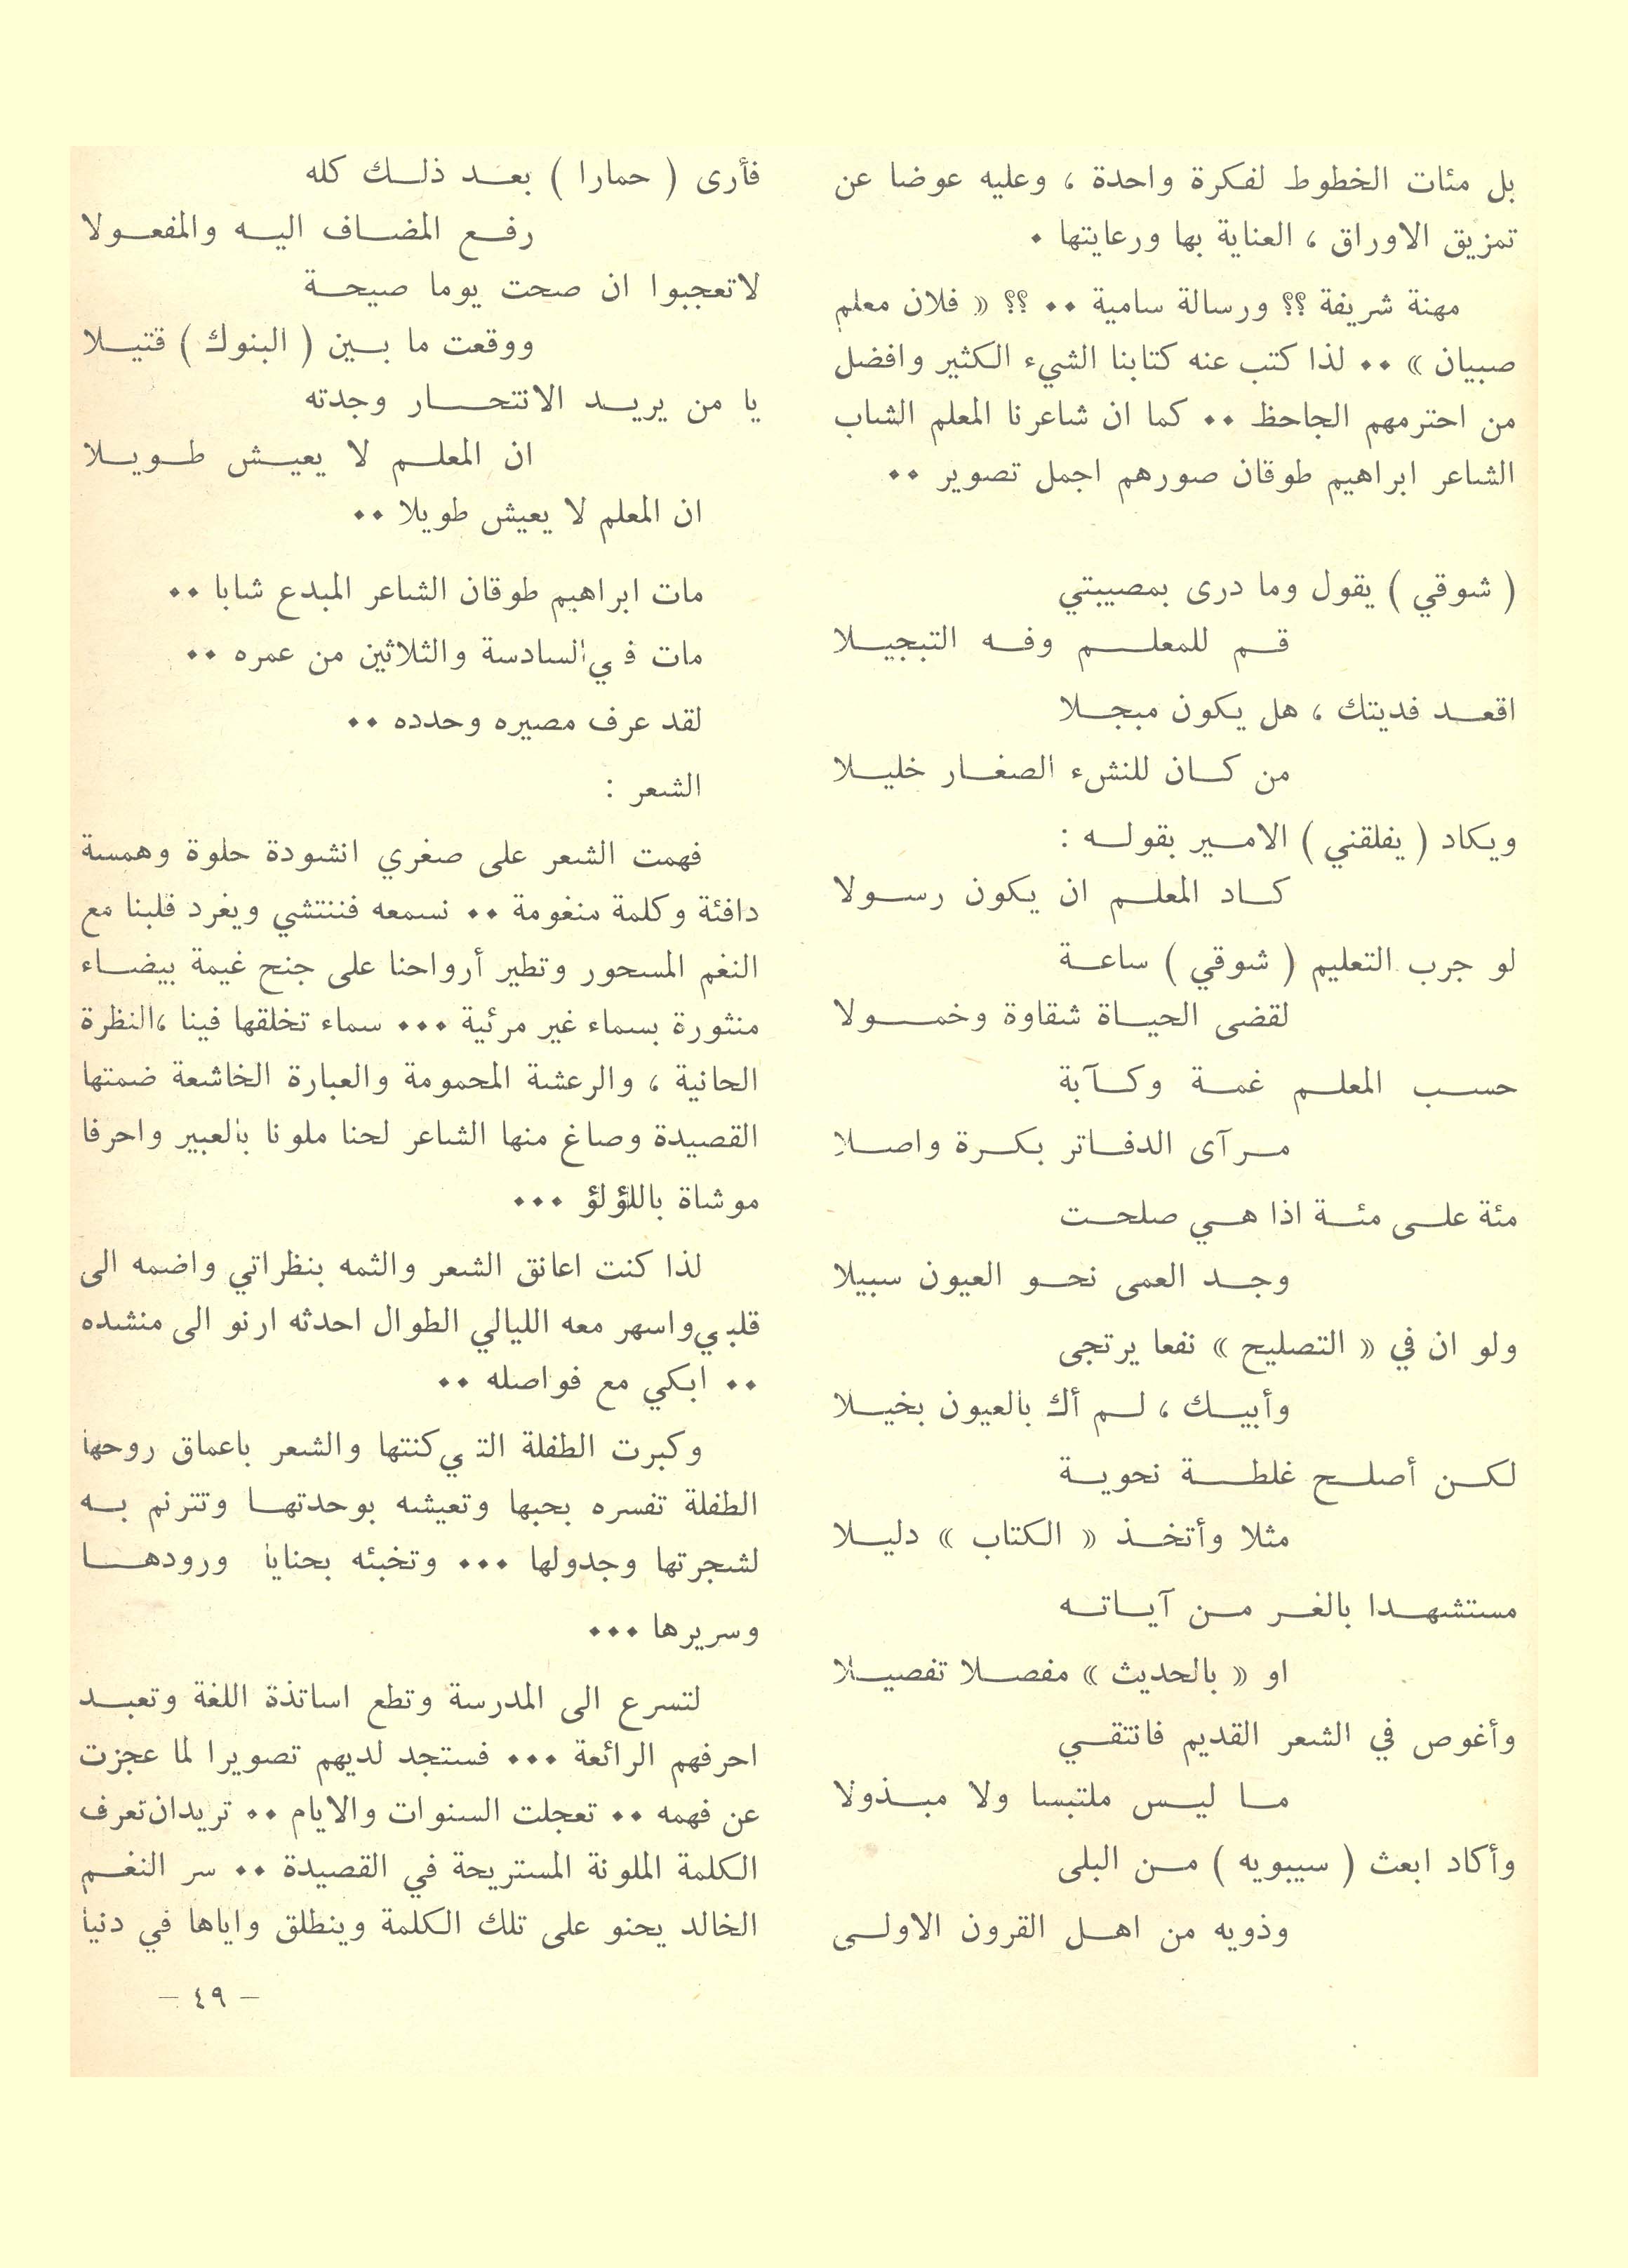 بل مئات الخطوط لفكرة واحدة ، وعليه عوضا عن
تمزيق الاوراق ، العناية بها ورعايتها .
مهنة شريفة ؟؟ ورسالة سامية .. ؟؟ « فلان معلم
صبيان » .. لذا كتب عنه كتابنا الشيء الكثير وافضل
من احترمهم الجاحظ .. كما ان شاعرنا المعلم الشاب
الشاعر ابراهيم طوقان صورهم اجمل تصوير ..
( شوقي ) يقول وما درى بمصيبتي
قم للمعلم وفه التبجيلا
اقعد فديتك ، هل يكون مبجلا
من كان للنشء الصغار خليلا
ويكاد ( يفلقني ) الامير بقوله :
كاد المعلم ان يكون رسولا
لو جرب التعليم ( شوقي ) ساعة
لقضى الحياة شقاوة وخمولا
حسب المعلم غمة وكآبة
مرآى الدفاتر بكرة واصلا
مئة على مئة اذا هي صلحت
وجد العمى نحو العيون سبيلا
ولو ان في « التصليح » نفعا يرتجى
وأبيك ، لم أك بالعيون بخيلا
لكن أصلح غلطة نحوية
مثلا وأتخذ « الكتاب » دليلا
مستشهدا بالغر من آياته
او « بالحديث » مفصلا تفصيلا
وأغوص في الشعر القديم فانتقي
ما ليس ملتبسا ولا مبذولا
وأكاد ابعث ( سيبويه ) من البلى
وذويه من اهل القرون الاولى
فأرى ( حمارا ) بعد ذلك كله
رفع المضاف اليه والمفعولا
لاتعجبوا ان صحت يوما صيحة
ووقعت ما بين ( البنوك ) قتيلا
يا من يريد الانتحار وجدته
ان المعلم لا يعيش طويلا
ان المعلم لا يعيش طويلا ..
مات ابراهيم طوقان الشاعر المبدع شابا ..
مات في السادسة والثلاثين من عمره ..
لقد عرف مصيره وحدده ..
الشعر :
فهمت الشعر على صغري انشودة حلوة وهمسة
دافئة وكلمة منغومة .. نسمعه فننتشي ويغرد قلبنا مع
النغم المسحور وتطير أرواحنا على جنح غيمة بيضاء
منثورة بسماء غير مرئية ... سماء تخلقها فينا ،النظرة
الحانية ، والرعشة المحمومة والعبارة الخاشعة ضمتها
القصيدة وصاغ منها الشاعر لحنا ملونا بالعبير واحرفا
موشاة باللؤلؤ ...
لذا كنت اعانق الشعر والثمه بنظراتي واضمه الى
قلبي واسهر معه الليالي الطوال احدثه ارنو الى منشده
.. ابكي مع فواصله ..
وكبرت الطفلة التي كنتها والشعر باعماق روحها
الطفلة تفسره بحبها وتعيشه بوحدتها وتترنم به
لشجرتها وجدولها ... وتخبئه بحنايا ورودها
وسريرها ...
لتسرع الى المدرسة وتطع اساتذة اللغة وتعبد
احرفهم الرائعة ... فستجد لديهم تصويرا لما عجزت
عن فهمه .. تعجلت السنوات والايام .. تريدان تعرف
الكلمة الملونة المستريحة في القصيدة .. سر النغم
الخالد يحنو على تلك الكلمة وينطلق واياها في دنيا
– ٤٩ –